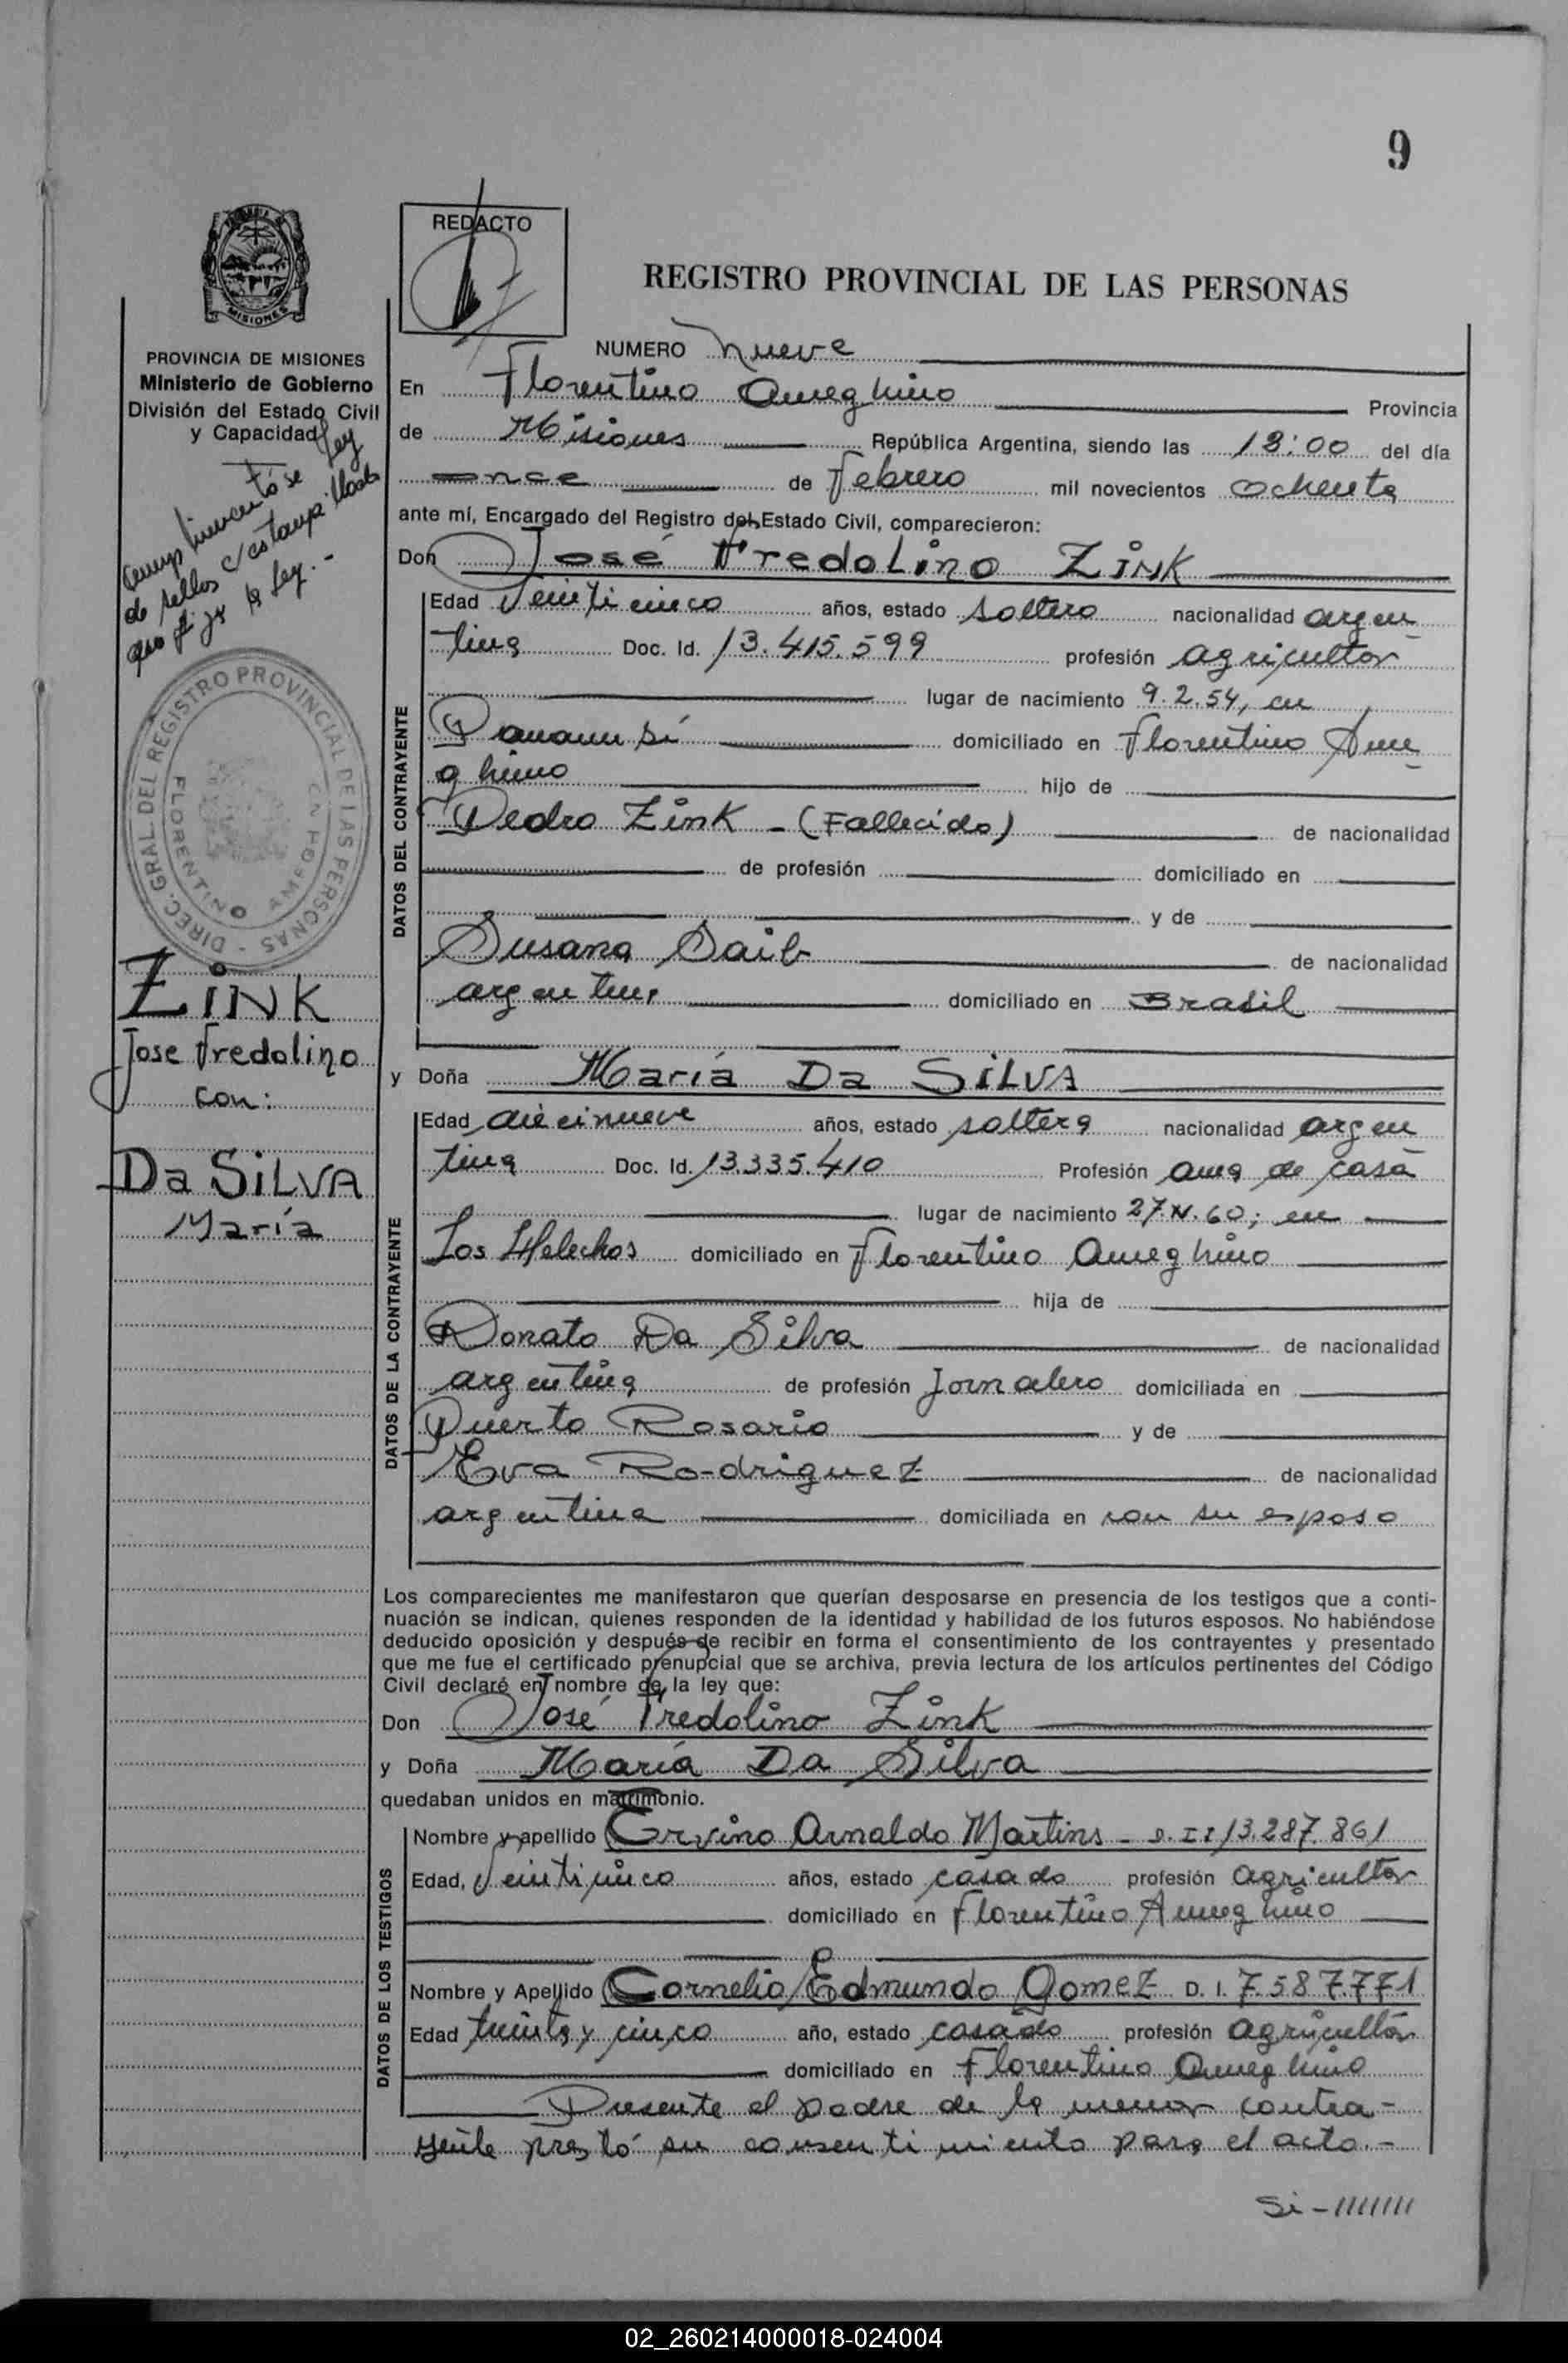 9
REDACTO
REGISTRO PROVINCIAL DE LAS PERSONAS
MISIONES
PROVINCIA DE MISIONES
Ministerio de Gobierno
División del Estado Civil
y Capacidad
Ley
Cumplimentóse
de sellos c/estampillado
que fija la Ley.-
DIREC. GRAL. DEL REGISTRO PROVINCIAL DE LAS PERSONAS
FLORENTINO AMEGHINO
ZINK
Jose Fredolino
con:
Da SILVA
María
NUMERO nueve
En Florentino Ameghino Provincia
de Misiones República Argentina, siendo las 18:00 del día
once de febrero mil novecientos ochenta
ante mí, Encargado del Registro del Estado Civil, comparecieron:
Don José Fredolino ZINK
DATOS DEL CONTRAYENTE
Edad Veinticinco años, estado soltero nacionalidad argen
tina Doc. Id. 13.415.599 profesión agricultor
lugar de nacimiento 9.2.54, en
Panambí domiciliado en Florentino Ame
ghino hijo de
Pedro Zink - (Fallecido) de nacionalidad
de profesión domiciliado en
y de
Susana Saib de nacionalidad
argentina domiciliado en Brasil
y Doña María Da SILVA
DATOS DE LA CONTRAYENTE
Edad diecinueve años, estado soltera nacionalidad argen
tina Doc. Id. 13.335.410 Profesión ama de casa
lugar de nacimiento 27. 60; en
Los Helechos domiciliado en Florentino Ameghino
hija de
Donato Da Silva de nacionalidad
argentina de profesión Jornalero domiciliada en
Puerto Rosario y de
Eva Rodriguez de nacionalidad
argentina domiciliada en con su esposo
Los comparecientes me manifestaron que querían desposarse en presencia de los testigos que a conti-
nuación se indican, quienes responden de la identidad y habilidad de los futuros esposos. No habiéndose
deducido oposición y después de recibir en forma el consentimiento de los contrayentes y presentado
que me fue el certificado prenupcial que se archiva, previa lectura de los artículos pertinentes del Código
Civil declaré en nombre de la ley que:
Don José Fredolino Zink
y Doña María Da Silva
quedaban unidos en matrimonio.
DATOS DE LOS TESTIGOS
Nombre y apellido Ervino Arnaldo Martins - D.I. 13.287.861
Edad, Veinticinco años, estado casado profesión agricultor
domiciliado en Florentino Ameghino
Nombre y Apellido Cornelio Edmundo Gomez D.I. 7.587.771
Edad treinta y cinco año, estado casado profesión agricultor
domiciliado en Florentino Ameghino
Presente el padre de la menor contra-
yente prestó su consentimiento para el acto.-
Si-///////
02_260214000018-024004